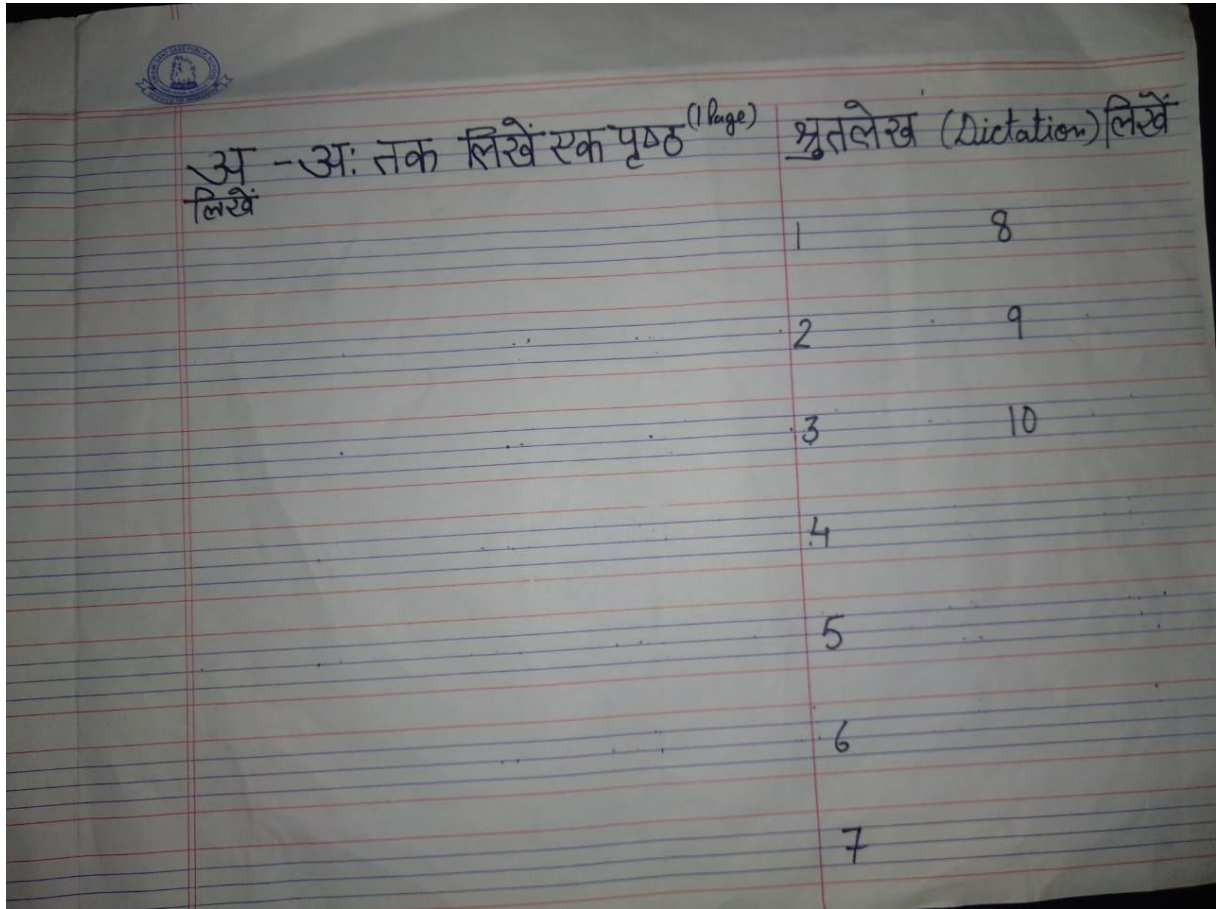 अ - अः तक लिखें एक पृष्ठ (1 Page)
लिखें
श्रुतलेख (Dictation) लिखें
1 8
2 9
3 10
4
5
6
7